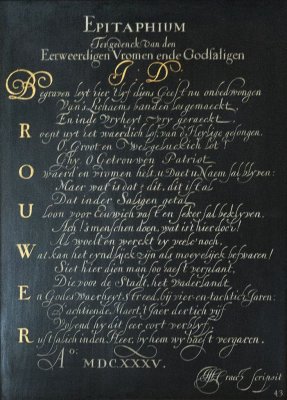 EPITAPHIUM
Ter gedenck van den
Eerweerdigen Vromen ende Godsaligen
I. D.
Begraven leyt hier Lyf dijns Geest nu onbedwongen
Van 's lichaems banden los gemaeckt
En in de Vryheyt vry geraeckt
Roept uyt het waerdich lof van d'Heylige gesongen.
O Groot en Wel geluckich lot!
Ghy, O Getrouwen Patriot
waerd en vromen helt u Daet u Naem sal blyven:
Maer wat is dat? dit, dit is't al
Dat in der Saligen getal
Loon voor Eeuwich vast en seker sal beklyven.
Ach! menschen doen, wat ist hier door!
Als woelt en werckt by veele noch,
wat kan het eynd'lijck zijn als moeyelijck beswaren!
Siet hier dien man soo vast verplant,
Die voor de Stadt, het vaderlandt
En Godes Waerheyt Streed, by vier-en-tachtich Jaren:
D'achtiende Maert, 't Jaer dertich vijf
Volend hy dit seer cort verblyf,
Rust salich in den Heer, by hem wy haest vergaren.
B
R
O
U
W
E
R
Ao:
MDCXXXV.
scripsit
43